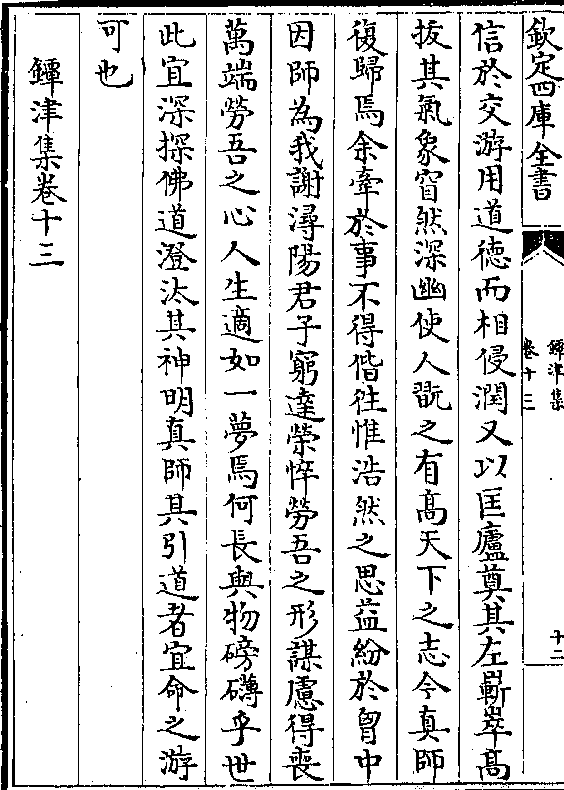 欽定四庫全書
鐔津集
卷十三
十二
信於交游用道徳而相侵潤又以匡廬奠其左嶄崒髙
拔其氣象窅然深幽使人翫之有髙天下之志今真師
復歸焉余牽於事不得偕往惟浩然之思益紛於胷中
因師為我謝潯陽君子窮達榮悴勞吾之形謀慮得喪
萬端勞吾之心人生適如一夢焉何長與物磅礴乎世
此宜深探佛道澄汰其神明真師其引道者宜命之游
可也
鐔津集卷十三